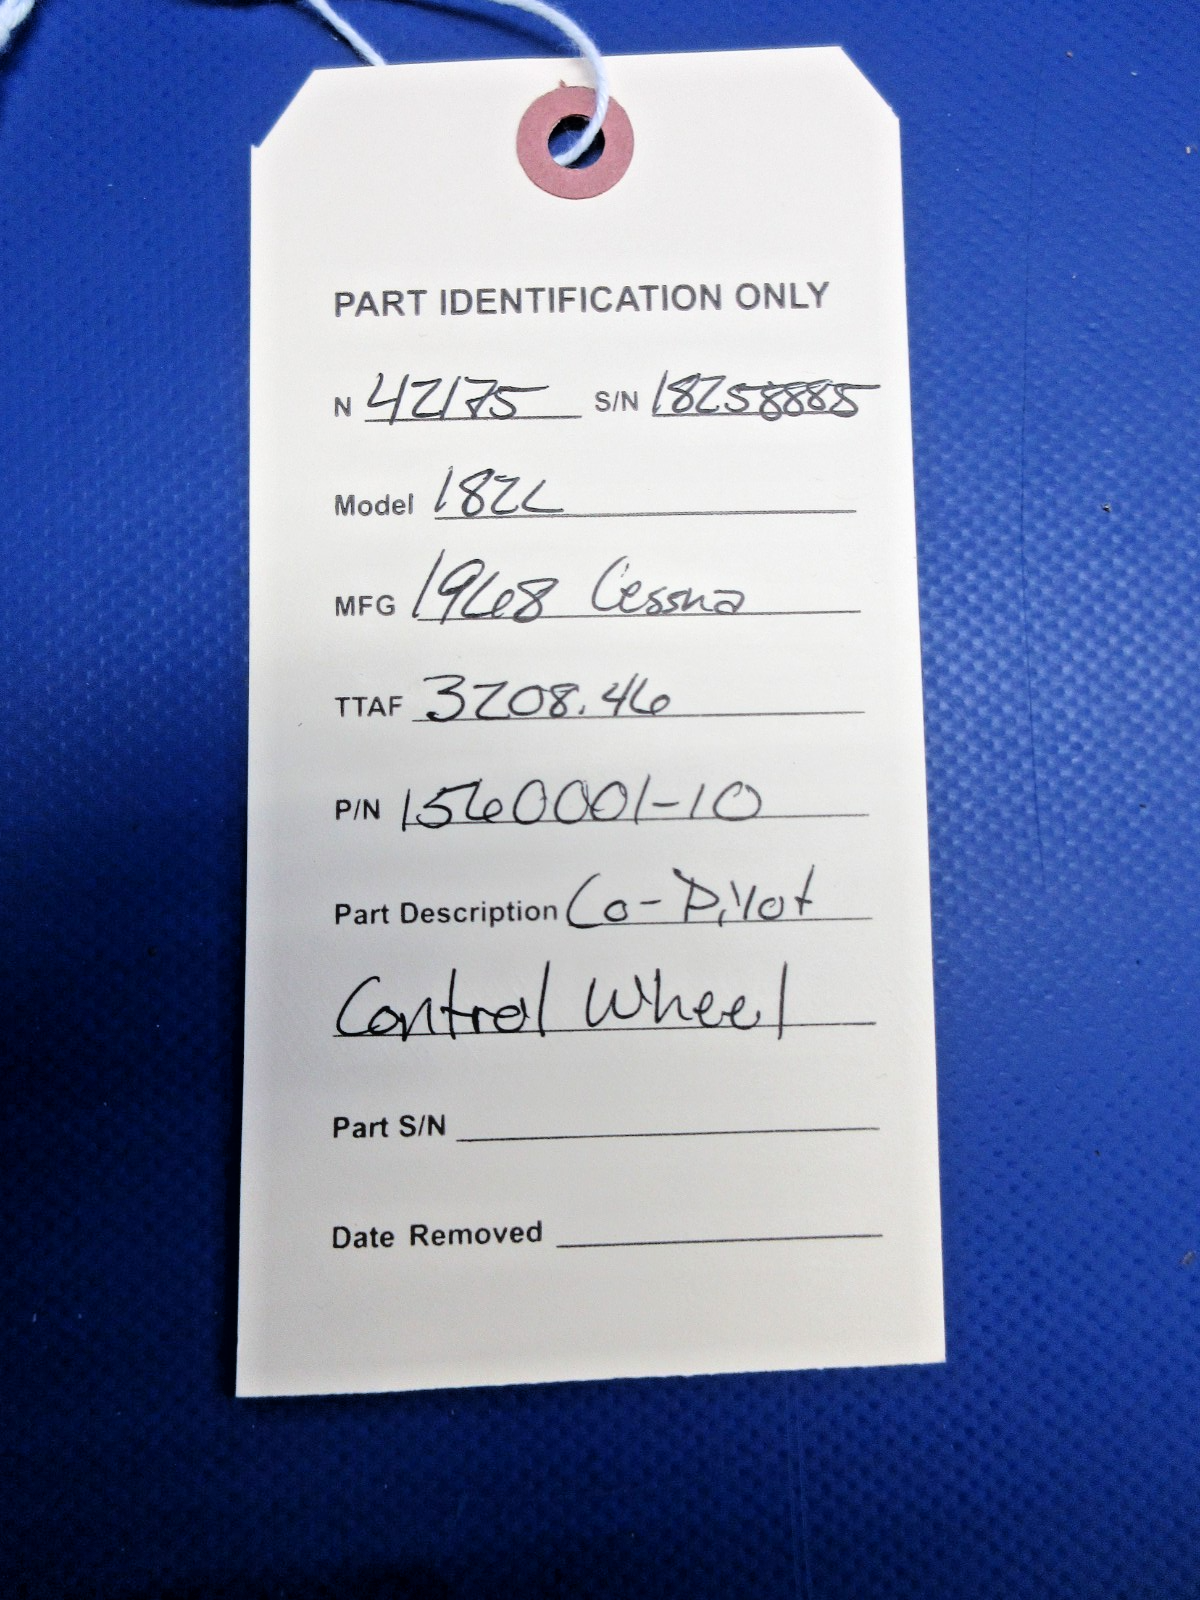 PART IDENTIFICATION ONLY
N 42175 S/N 18258885
Model 182L
MFG 1968 Cessna
TTAF 3208.46
P/N 1560001-10
Part Description Co-Pilot
Control Wheel
Part S/N
Date Removed